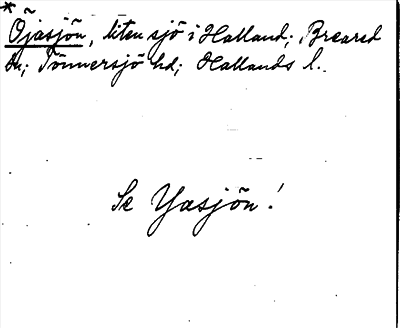 * Öjasjön, liten sjö i Halland; Breared
sn; Tönnersjö hd; Hallands l.
Se Yasjön!